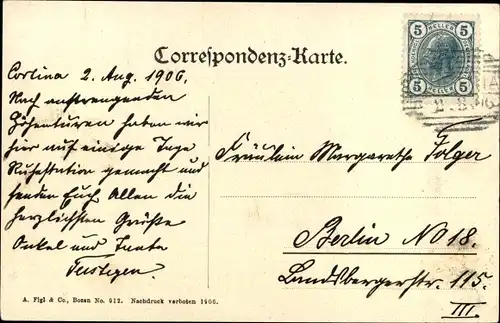 Correspondenz-Karte.
5 HELLER 5
5 HELLER 5
Cortina 2. Aug. 1906.
Nach anstrengenden
Höhentouren haben wir
hier auf einige Tage
Ruhestation gemacht und
senden Euch Allen die
herzlichsten Grüße
Onkel und Tante
Fräulein Margarethe Folger
Berlin NO 18.
Landsbergerstr. 115.
III.
A. Figl & Co., Bozen No. 912. Nachdruck verboten 1906.